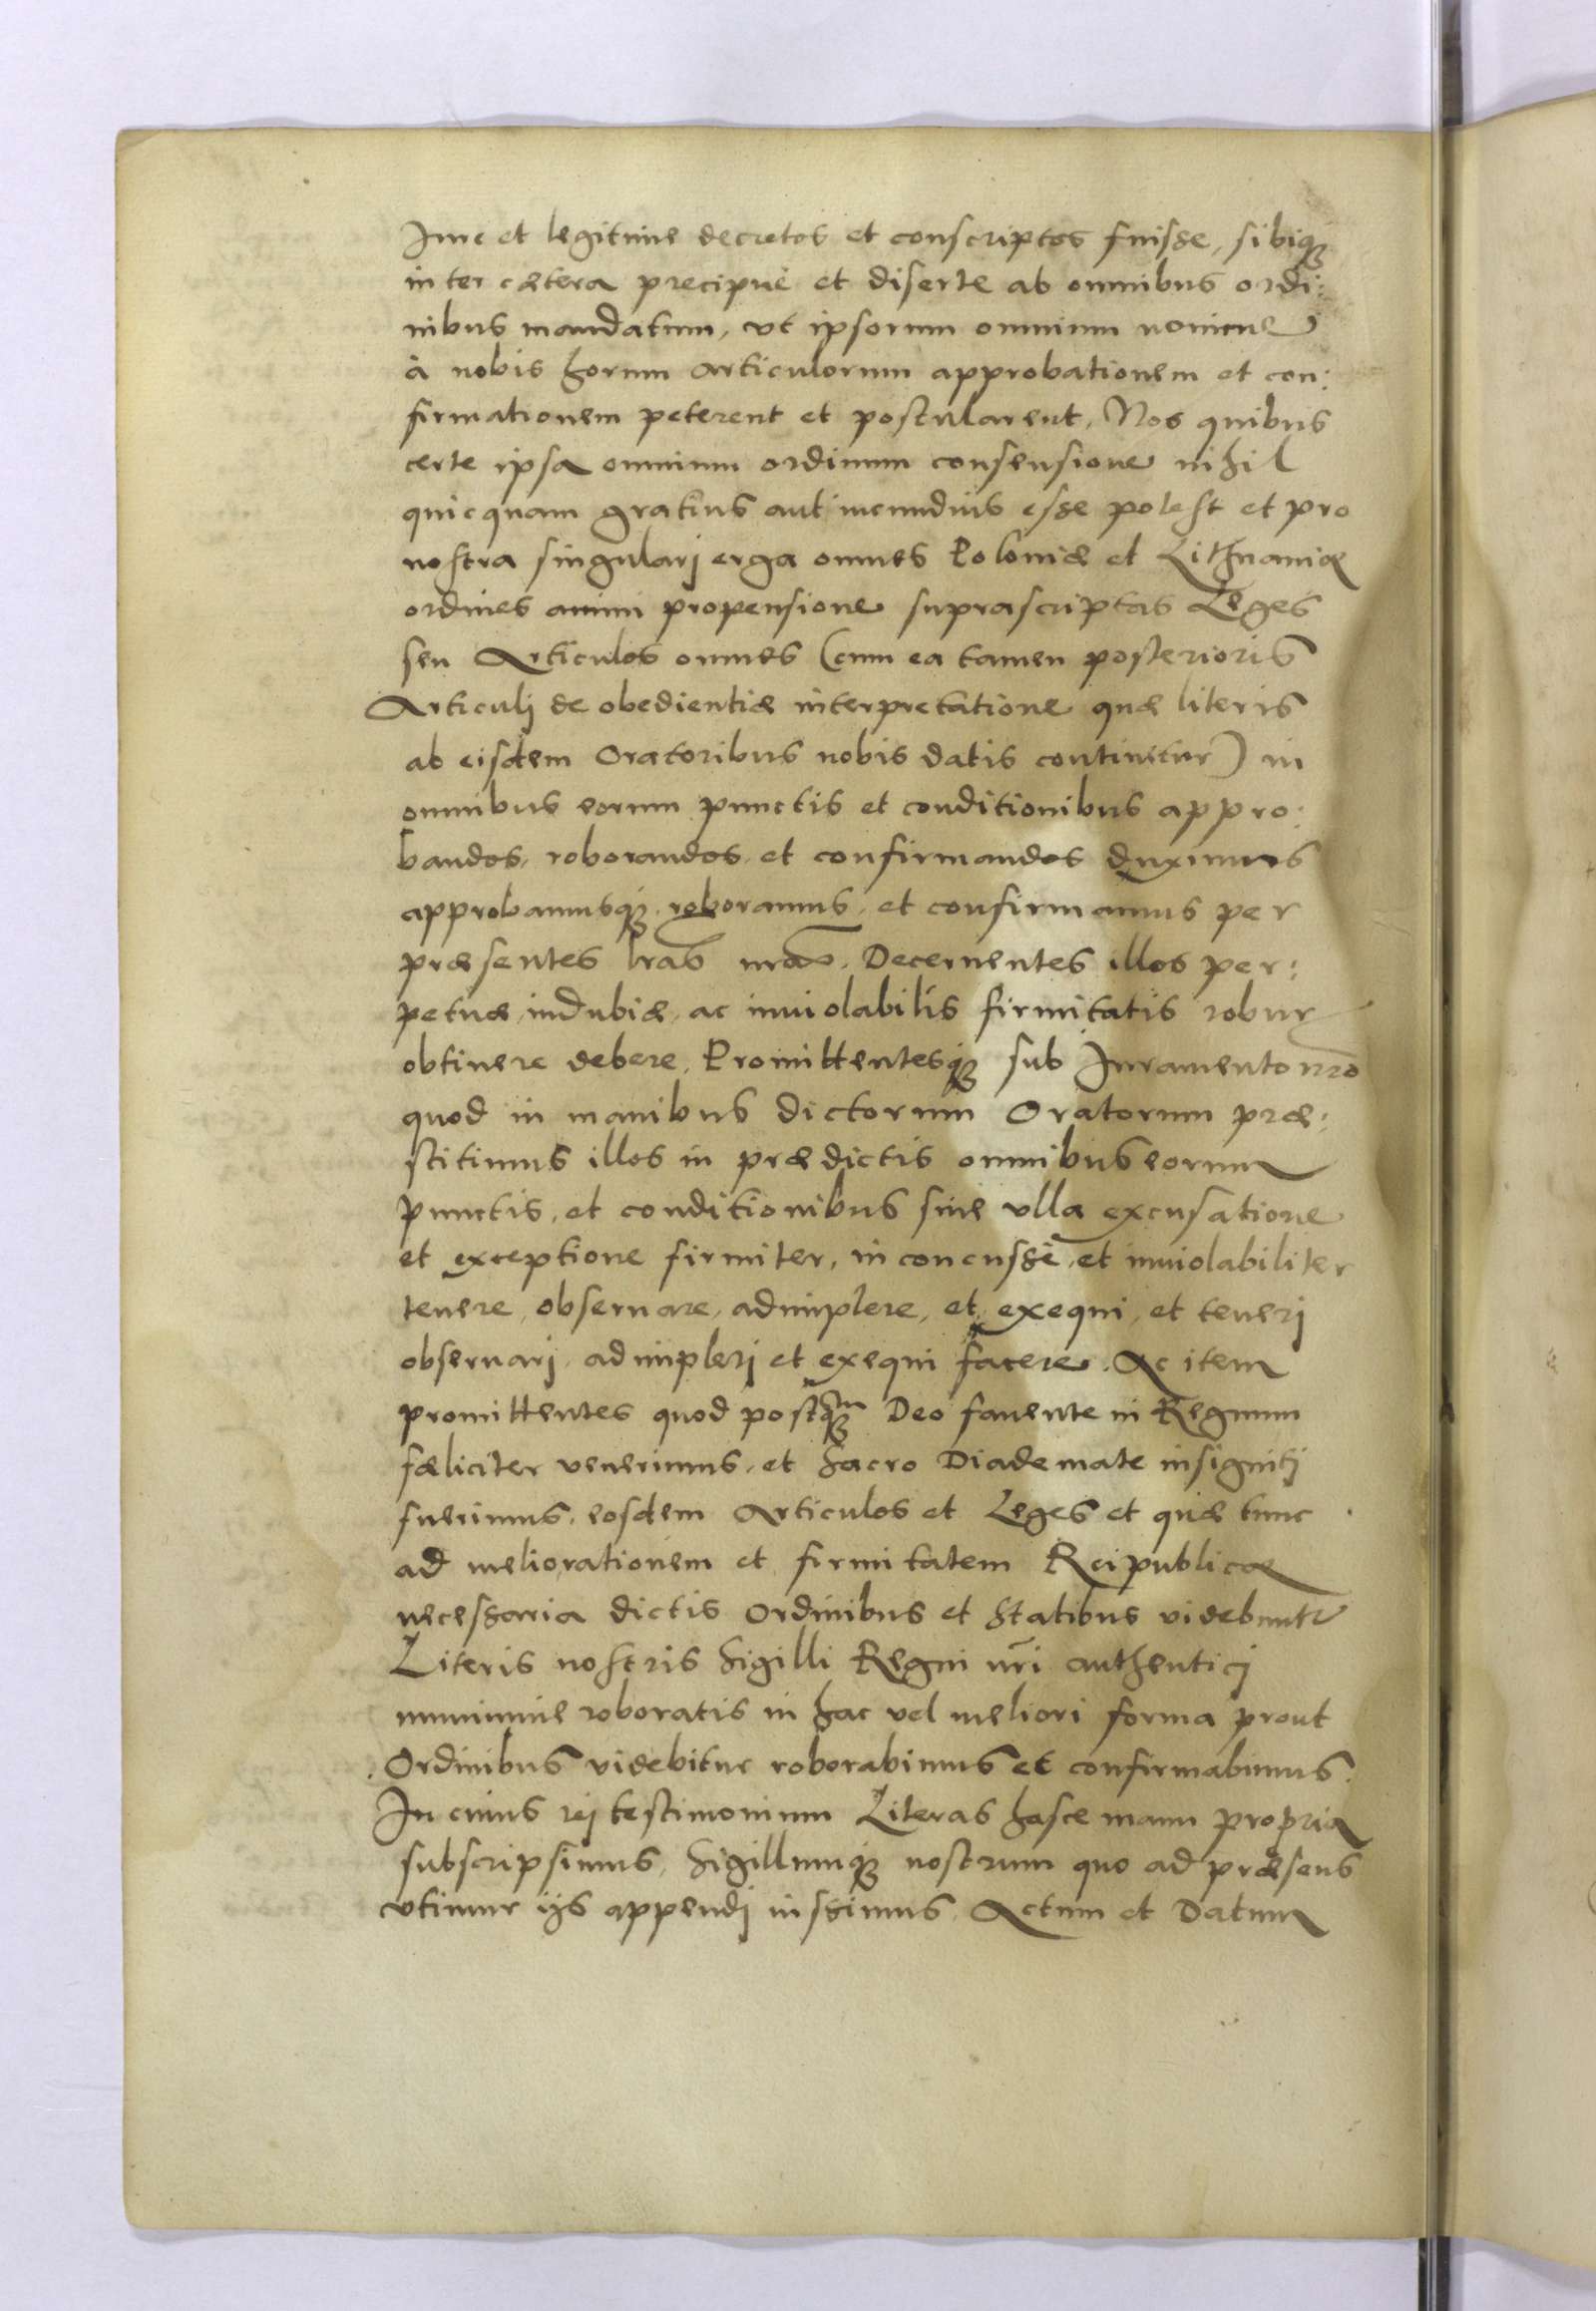 Jure et legitime decretos et conscriptos fuisse, sibiq;
inter cætera precipuè et diserte ab omnibus ordi:
nibus mandatum, vt ipsorum omnium nomine
à nobis horum articulorum approbationem et con:
firmationem peterent et postularent, Nos quibus
certe ipsa omnium ordinum consensione nihil
quicquam gratius aut iucundius esse potest et pro
nostra singularj erga omnes Poloniæ et Lithuaniæ
ordines animi propensione suprascriptas Leges
seu Articulos omnes (cum ea tamen posterioris
Articulj de obedientiæ interpretatione quæ literis
ab eisdem Oratoribus nobis datis continetur) in
omnibus eorum punctis et conditionibus appro:
bandos, roborandos, et confirmandos duximus
approbamusq;, roboramus, et confirmamus per
præsentes lras nras. Decernentes illos per:
petuæ, indubiæ, ac inuiolabilis firmitatis robur
obtinere debere, Promittentesq; sub Juramento nro
quod in manibus dictorum Oratorum præ:
stitimus illos in prædictis omnibus eorum
punctis, et conditionibus sine vlla excusatione
et exceptione firmiter, inconcussè, et inuiolabiliter
tenere, obseruare, adimplere, et exequi, et tenerj
obseruarj, adimplerj et exequi facere. Ac item
promittentes quod postq;m Deo fauente in Regnum
fæliciter venerimus, et Sacro Diademate insignitj
fuerimus, eosdem Articulos et Leges et quæ tunc
ad meliorationem et firmitatem Reipublicæ
necessaria dictis Ordinibus et Statibus videbuntr
Literis nostris Sigilli Regni nri authenticj
munimine roboratis in hac vel meliori forma prout
Ordinibus videbitur roborabimus et confirmabimus.
In cuius rej testimonium Literas hasce manu propria
subscripsimus, Sigillumq; nostrum quo ad præsens
vtimur ijs appendj iussimus. Actum et Datum